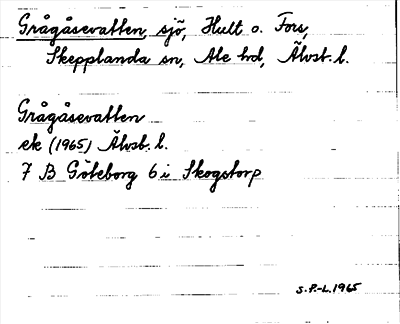 Grågåsevatten, sjö, Hult o. Fors,
Skepplanda sn, Ale hd, Älvsb. l.
Grågåsevatten
ek (1965) Älvsb. l.
7 B Göteborg 6 i Skogstorp
S.P.-L. 1965